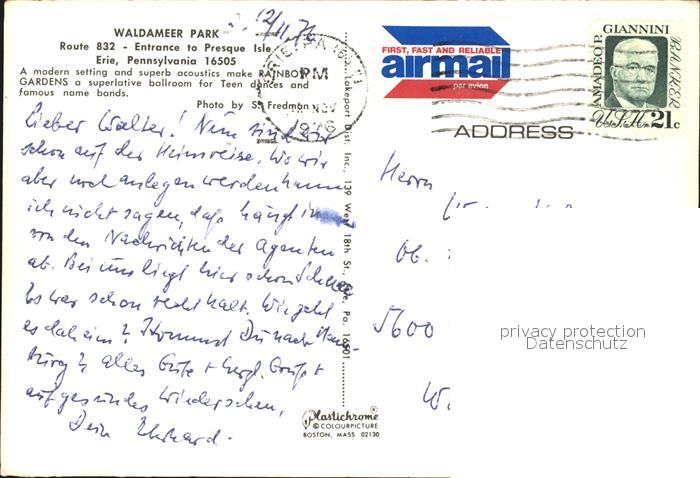 12/11.76
WALDAMEER PARK
Route 832 - Entrance to Presque Isle
Erie, Pennsylvania 16505
A modern setting and superb acoustics make RAINBOW
GARDENS a superlative ballroom for Teen dances and
famous name bands.
Photo by S. Fredman
ERIE, PA
PM
NOV
1976
FIRST, FAST AND RELIABLE
airmail
par avion
AMADEO P. GIANNINI
BANKER
U.S.A. 21c
ADDRESS
Lieber Walter! Nun sind wir
schon auf der Heimreise. Wo wir
aber noch anlegen werden kann
ich nicht sagen, daß hängt immer
von den Nachrichten der Agenten
ab. Bei uns liegt hier schon Schnee
Es war schon recht kalt. Wie geht
es daheim? Kommst Du nach
burg? alles Gute + herzl. Grüße +
auf gesundes Wiedersehen,
Dein Ekhard.
Lakeport Dist. Inc., 139 West 18th St., Erie, Pa. 16501
Herrn
5600
privacy protection
Datenschutz
Plastichrome®
© COLOURPICTURE
BOSTON, MASS. 02130